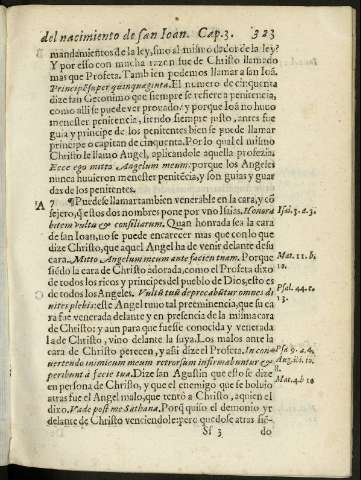 del nacimiento de san Ioan. Cap.3. 323
mandamientos de la ley, sino al mismo dador de la ley?
Y por esso con mucha razon fue de Christo llamado
mas que Profeta. Tambien podemos llamar a san Iuã.
Princips super quinquaginta. El numero de cinquenta
dize san Geronimo que siempre se refiere a penitencia,
como alli se puede ver prouado: y porque Ioã no huuo
menester penitencia, siendo siempre justo, antes fue
guia y principe de los penitentes bien se puede llamar
principe o capitan de cinquenta. Por lo qual el mismo
Christo le llamo Angel, aplicandole aquella profezia.
Ecce ego mitto Angelum meum: porque los Angeles
nunca huuieron menester penitẽcia, y son guias y guar
das de los penitentes.
A 7 ¶Puedese llamar tambien venerable en la cara, y cõ
sejero, q̃ estos dos nombres pone por vno Isaias. Honora Isai.3.a.3.
bitem vultu & consiliarum. Quan honrada sea la cara
de san Iuan, no se puede encarecer mas que con lo que
dize Christo, que aquel Angel ha de venir delante de su
cara. Mitto Angelum meum ante faciem tuam. Porque Mat.11.b.
siẽdo la cara de Christo adorada, como el Profeta dixo 10.
de todos los ricos y principes del pueblo de Dios, esto es
de todos los Angeles. Vultũ tuũ deprecabũtur omnes di Psal.44.c.
uites plebis: este Angel tuuo tal preeminencia, que su ca 13.
ra fue venerada delante y en presencia de la misma cara
de Christo: y aun para que fuesse conocida y venerada
la de Christo, vino delante la suya. Los malos ante la
cara de Christo perecen, y assi dize el Profeta. In con- Psa.9.a.4.
uertendo inimicum meum retrorsum infirmabuntur & Aug.ibi.to.
peribunt à facie tua. Dize san Agustin que esto se dize 8.
en persona de Christo, y que el enemigo que se boluio Mat.4.b.10
atras fue el Angel malo, que tentò a Christo, aquien el
dixo. Vade post me Sathana. Porq̃ quiso el demonio yr
delante de Christo venciendole: pero quedose atras siẽ-
Sſ 3 do